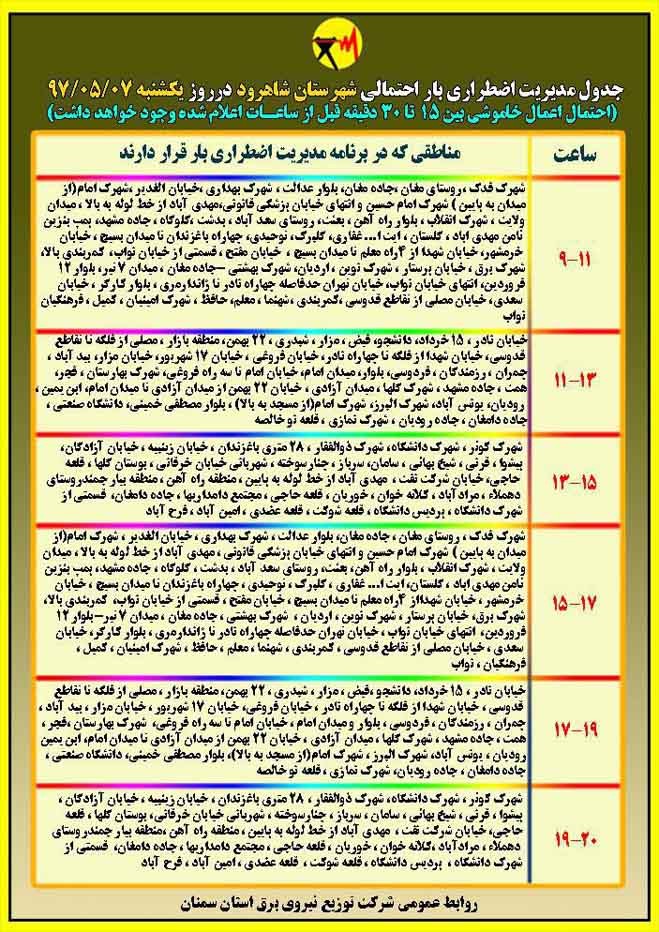 جدول مدیریت اضطراری بار احتمالی شهرستان شاهرود درروز یکشنبه ۹۷/۰۵/۰۷
(احتمال اعمال خاموشی بین ۱۵ تا ۳۰ دقیقه قبل از ساعات اعلام شده وجود خواهد داشت)
ساعت
مناطقی که در برنامه مدیریت اضطراری بار قرار دارند
۹-۱۱
شهرک فدک، روستای مغان، جاده مغان، بلوار عدالت ، شهرک بهداری ،خیابان الغدیر ،شهرک امام(از
میدان به پایین ) شهرک امام حسین و انتهای خیابان پزشکی قانونی،مهدی آباد از خط لوله به بالا ، میدان
ولایت ، شهرک انقلاب ، بلوار راه آهن ، بعثت، روستای سعد آباد ، بدشت ،کلوکاه ، جاده مشهد، پمپ بنزین
ثامن مهدی اباد ، گلستان ، ایت ا... غفاری، گلبرگ ، توحیدی، چهاراه باغزندان تا میدان بسیج ، خیابان
خرمشهر، خیابان شهدا از ۴راه معلم تا میدان بسیج ، خیابان مفتح ، قسمتی از خیابان نواب، کمربندی بالا،
شهرک برق ، خیابان پرستار ، شهرک نوین ، اردیان، شهرک بهشتی –جاده مغان ، میدان ۷ تیر، بلوار ۱۲
فروردین، انتهای خیابان نواب، خیابان تهران حدفاصله چهاراه نادر تا ژاندارمری، بلوار کارگر ، خیابان
سعدی، خیابان مصلی از تقاطع قدوسی ،کمربندی ،شهنما ، معلم، حافظ ، شهرک امینیان ، کمیل ، فرهنگیان
نواب
۱۱-۱۳
خیابان نادر ، ۱۵ خرداد، دانشجو، فیض ، مزار ، شیدری ، ۲۲ بهمن، منطقه بازار ، مصلی از فلکه تا تقاطع
قدوسی، خیابان شهدا از فلکه تا چهاراه نادر، خیابان فروغی ، خیابان ۱۷ شهریور، خیابان مزار، بید آباد ،
چمران ، رزمندگان ، فردوسی ، بلوار، میدان امام، خیابان امام تا سه راه فروغی، شهرک بهارستان ، فجر،
همت ، جاده مشهد ، شهرک گلها ، میدان آزادی ، خیابان ۲۲ بهمن از میدان آزادی تا میدان امام، ابن یمین ،
رودیان، یونس آباد، شهرک البرز، شهرک امام(از مسجد به بالا) ، بلوار مصطفی خمینی، دانشگاه صنعتی ،
جاده دامغان ، جاده رودیان ، شهرک نمازی ، قلعه نو خالصه
۱۳-۱۵
شهرک کوثر ، شهرک دانشگاه، شهرک ذوالفقار ، ۲۸ متری باغزندان ، خیابان زینبیه ، خیابان آزادگان،
پیشوا ، قرنی ، شیخ بهائی ، سامان، سرباز ، چنارسوخته ، شهربانی خیابان خرقانی ، بوستان گلها ، قلعه
حاجی، خیابان شرکت نفت ، مهدی آباد از خط لوله به پایین ، منطقه راه آهن ، منطقه بیار جمندروستای
دهملاء ، مرادآباد، کلاته خوان ، خوریان ، قلعه حاجی ، مجتمع دامداریها ، جاده دامغان، قسمتی از
شهرک دانشگاه ، پردیس دانشگاه ، قلعه شوکت ، قلعه عضدی ، امین آباد ، فرح آباد
۱۵-۱۷
شهرک فدک ، روستای مغان ، جاده مغان، بلوار عدالت ، شهرک بهداری ، خیابان الغدیر ، شهرک امام(از
میدان به پایین ) شهرک امام حسین و انتهای خیابان پزشکی قانونی ، مهدی آباد از خط لوله به بالا، میدان
ولایت ، شهرک انقلاب ، بلوار راه آهن، بعثت، روستای سعد آباد ، بدشت ، کلوکاه ، جاده مشهد، پمپ بنزین
ثامن مهدی اباد ، گلستان، ایت ا... غفاری ، گلبرگ ، توحیدی ، چهاراه باغزندان تا میدان بسیج ، خیابان
خرمشهر ، خیابان شهدااز ۴راه معلم تا میدان بسیج ، خیابان مفتح ، قسمتی از خیابان نواب، کمربندی بالا،
شهرک برق، خیابان پرستار ، شهرک نوین ، اردیان ، شهرک بهشتی ، جاده مغان ، میدان ۷ تیر–بلوار ۱۲
فروردین، انتهای خیابان نواب، خیابان تهران حدفاصله چهاراه نادر تا ژاندارمری ، بلوار کارگر، خیابان
سعدی ، خیابان مصلی از تقاطع قدوسی ، کمربندی ، شهنما ، معلم ، حافظ ، شهرک امینیان ، کمیل ،
فرهنگیان ، نواب
۱۷-۱۹
خیابان نادر ، ۱۵ خرداد، دانشجو،فیض ، مزار ، شیدری ، ۲۲ بهمن، منطقه بازار ، مصلی از فلکه تا تقاطع
قدوسی ، خیابان شهدا از فلکه تا چهاراه نادر ، خیابان فروغی، خیابان ۱۷ شهریور ، خیابان مزار، بید آباد ،
چمران ، رزمندگان ، فردوسی ، بلوار و میدان امام ، خیابان امام تا سه راه فروغی ، شهرک بهارستان ،فجر،
همت ، جاده مشهد ، شهرک گلها ، میدان آزادی ، خیابان ۲۲ بهمن از میدان آزادی تا میدان امام، ابن یمین
رودیان ، یونس آباد، شهرک البرز ، شهرک امام(از مسجد به بالا)، بلوار مصطفی خمینی، دانشگاه صنعتی ،
جاده دامغان ، جاده رودیان، شهرک نمازی ، قلعه نو خالصه
۱۹-۲۰
شهرک کوثر ، شهرک دانشگاه، شهرک ذوالفقار ، ۲۸ متری باغزندان ، خیابان زینبیه ، خیابان آزادگان ،
پیشوا ، قرنی ، شیخ بهائی ، سامان ، سرباز ، چنارسوخته ، شهربانی خیابان خرقانی ، بوستان گلها ، قلعه
حاجی، خیابان شرکت نفت ، مهدی آباد از خط لوله به پایین ، منطقه راه آهن ،منطقه بیار جمندروستای
دهملاء ، مرادآباد، کلاته خوان ، خوریان ، قلعه حاجی ، مجتمع دامداریها ، جاده دامغان، قسمتی از
شهرک دانشگاه ، پردیس دانشگاه ، قلعه شوکت ، قلعه عضدی ، امین آباد ، فرح آباد
روابط عمومی شرکت توزیع نیروی برق استان سمنان